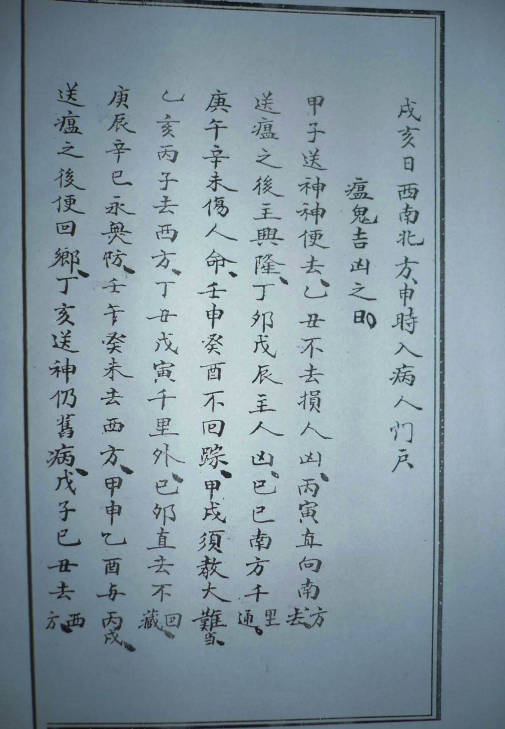 戌亥日西南北方、申時入病人门戸
瘟鬼吉凶之日
甲子送神神便去、乙丑不去損人凶、丙寅直向南方去、
送瘟之後主興隆、丁夘戊辰主人凶、巳巳南方千里通、
庚午辛未傷人命、壬申癸酉不回踪、甲戌須教大難当、
乙亥丙子去西方、丁丑戊寅千里外、巳夘直去不回藏、
庚辰辛巳永無防、壬午癸未去西方、甲申乙酉与丙戌、
送瘟之後便回鄉、丁亥送神仍舊病、戊子巳丑去西方、